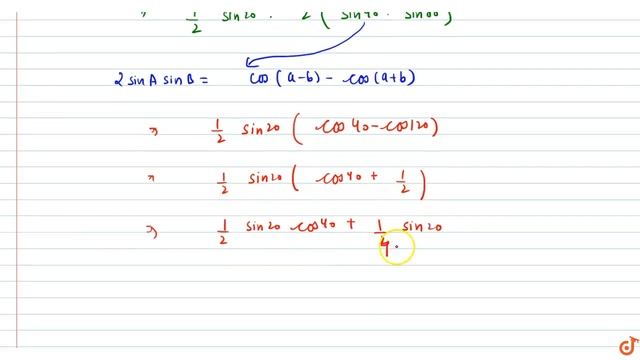 » 1/2 sin20 . 2 ( sin40 . sin80 )
2 sinA sinB = cos (a-b) - cos (a+b)
» 1/2 sin20 ( cos40 - cos120 )
» 1/2 sin20 ( cos40 + 1/2 )
⇒ 1/2 sin20 cos40 + 1/4 sin20